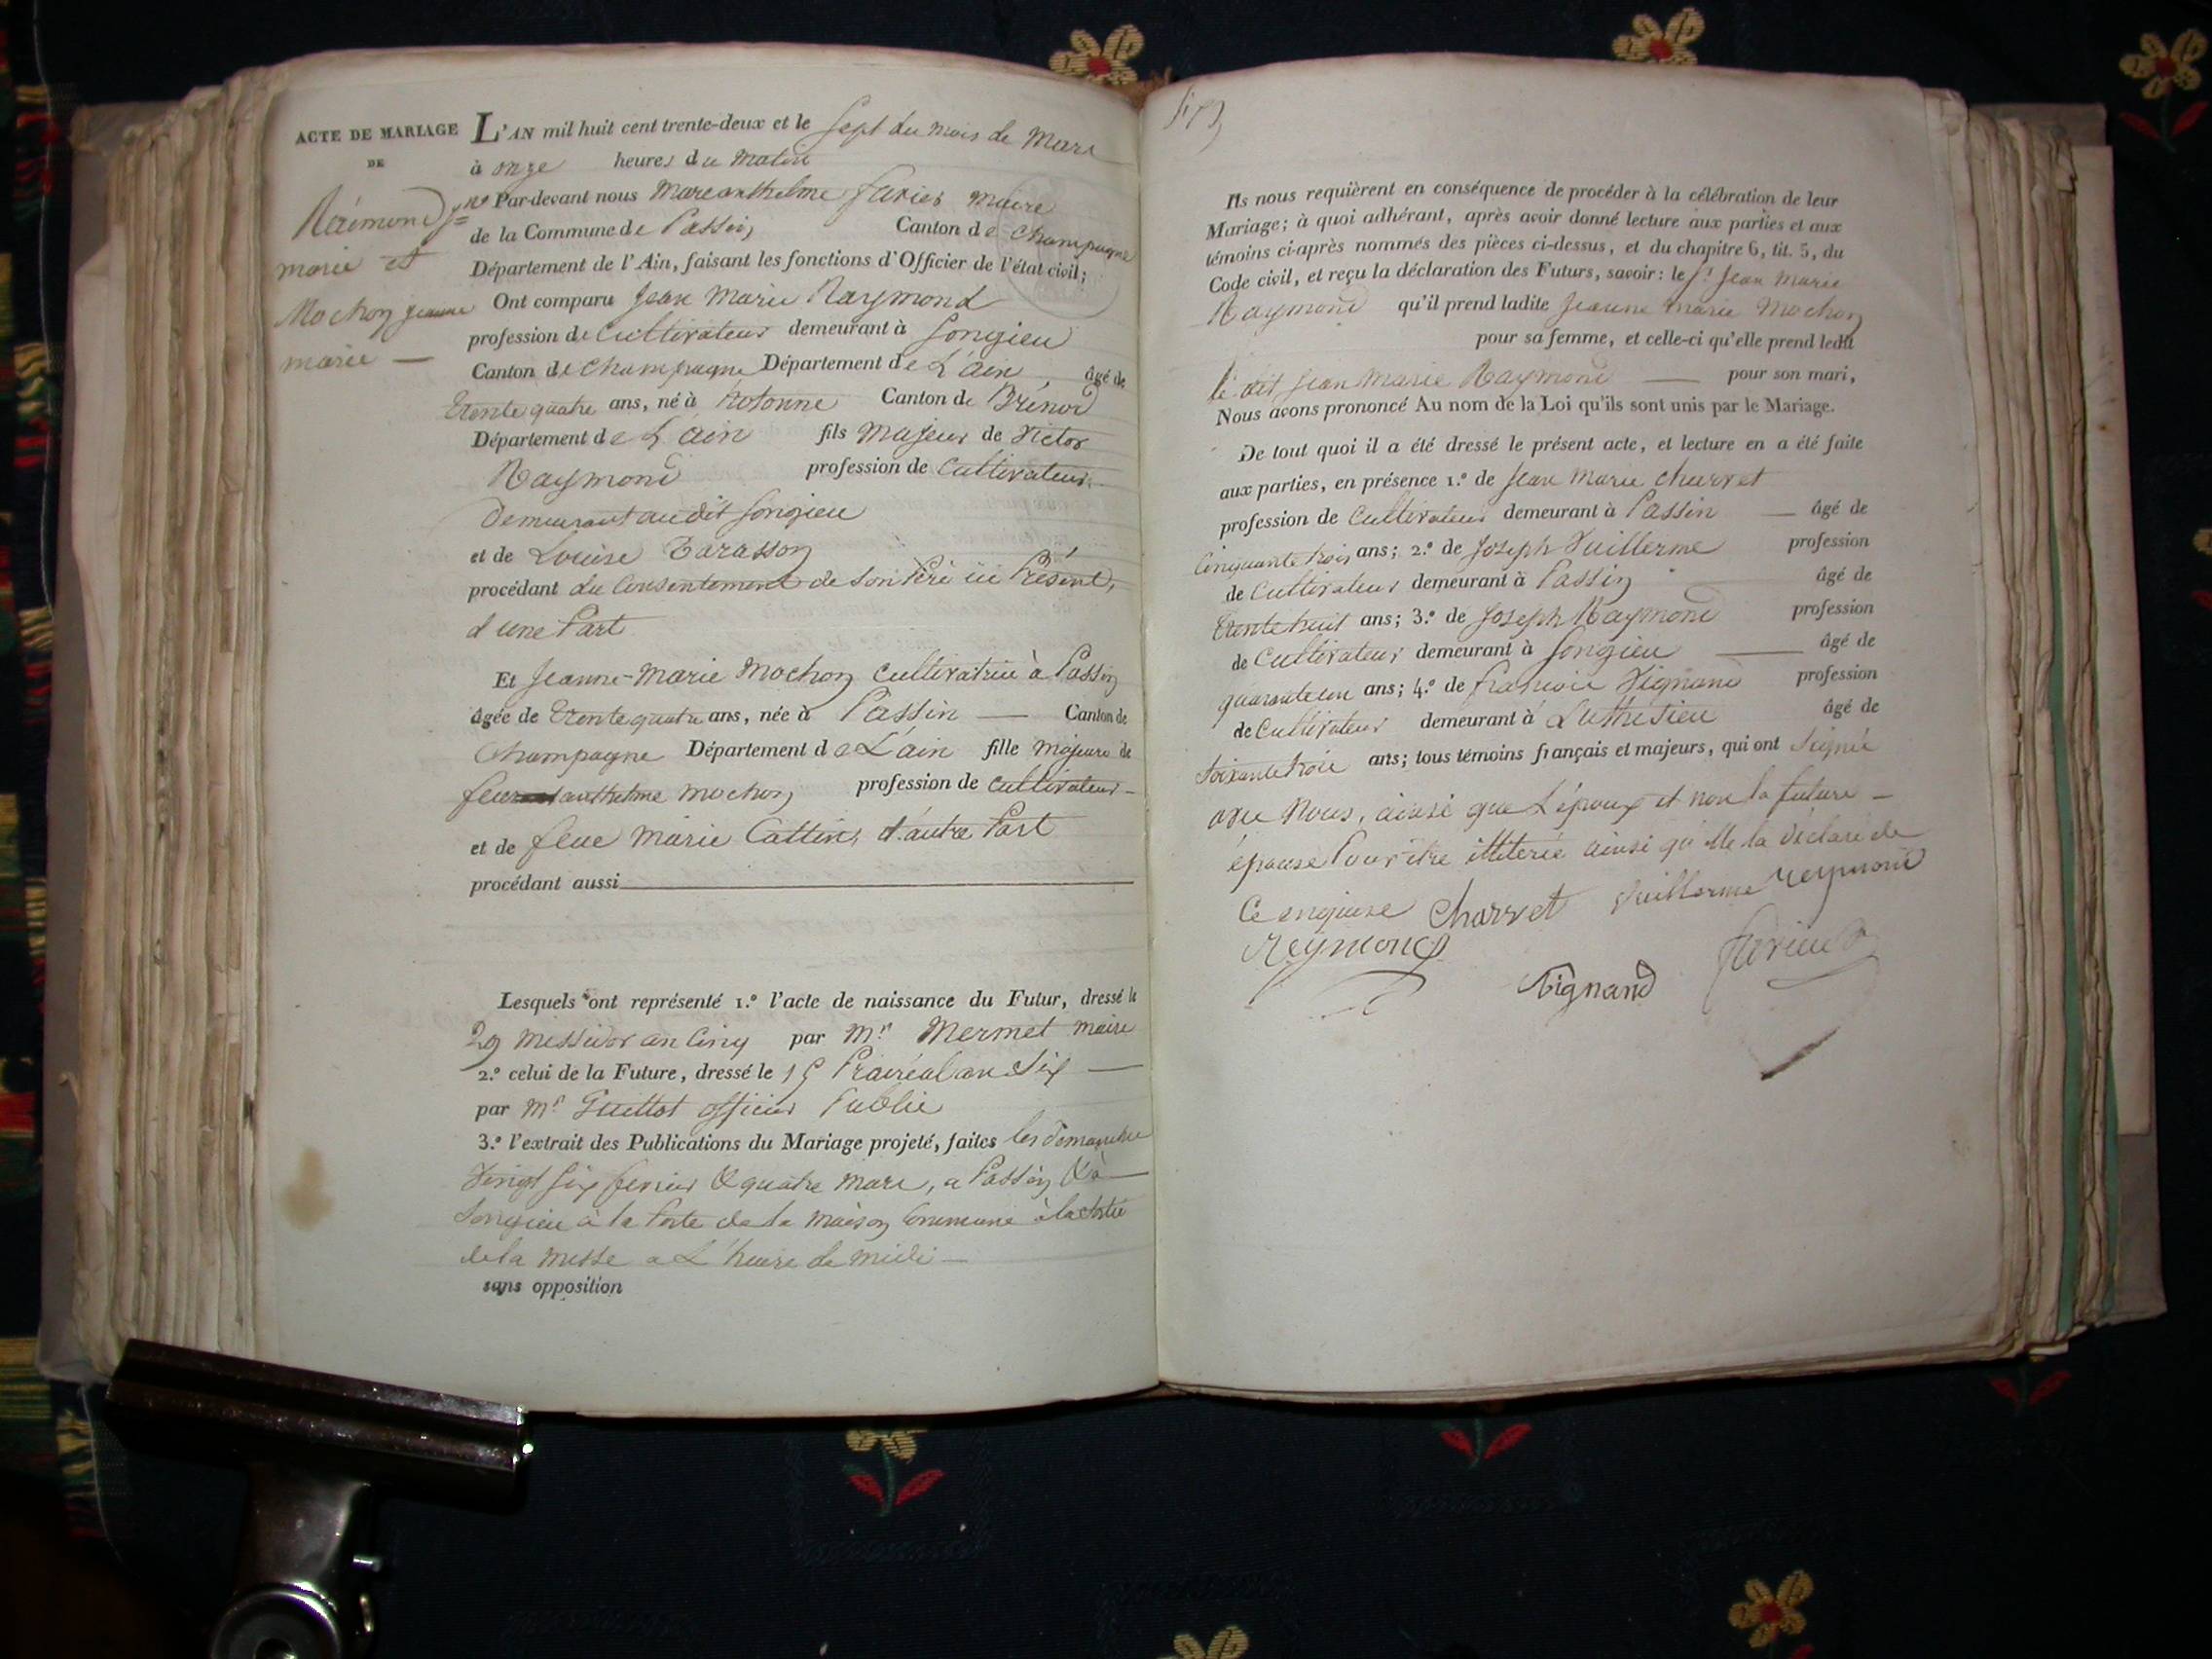 ACTE DE MARIAGE
DE
Raimond Jn
marie et
Mochon jeanne
marie —
L'AN mil huit cent trente-deux et le Sept du mois de Mars
à onze heures du matin
Par-devant nous Marc anthelme favier maire
de la Commune de Passin, Canton de Champagne
Département de l'Ain, faisant les fonctions d'Officier de l'état civil;
Ont comparu Jean Marie Raymond
profession de Cultivateur demeurant à Songieu
Canton de Champagne Département de L'ain âgé de
trente quatre ans, né à hotonne Canton de Brénod
Département de L'ain fils majeur de Victor
Raymond profession de Cultivateur
demeurant au dit Songieu
et de Louise Tarasson
procédant du Consentement de Son Père ici Présent,
d'une Part
Et Jeanne-Marie Mochon Cultivatrice à Passin
âgée de trente quatre ans, née à Passin — Canton de
Champagne Département de L'ain fille majeure de
feu anthelme Mochon profession de Cultivateur –
et de feue Marie Cattin, d'autre Part
procédant aussi
Lesquels ont représenté 1.º l'acte de naissance du Futur, dressé le
29 messidor an Cinq par Mr Mermet maire
2.º celui de la Future, dressé le 15 Prairéal an Six —
par Mr Guillot officier Public
3.º l'extrait des Publications du Mariage projeté, faites les dimanches
Vingt six fevrier & quatre mars, a Passin & à
Songieu à la Porte de la Maison Commune à la Sortie
de la messe a L'heure de midi —
sans opposition
Ils nous requièrent en conséquence de procéder à la célébration de leur
Mariage; à quoi adhérant, après avoir donné lecture aux parties et aux
témoins ci-après nommés des pièces ci-dessus, et du chapitre 6, tit. 5, du
Code civil, et reçu la déclaration des Futurs, savoir: le Sr Jean Marie
Raymond qu'il prend ladite Jeanne Marie Mochon
pour sa femme, et celle-ci qu'elle prend ledit
le dit Jean Marie Raymond — pour son mari,
Nous avons prononcé Au nom de la Loi qu'ils sont unis par le Mariage.
De tout quoi il a été dressé le présent acte, et lecture en a été faite
aux parties, en présence 1.º de Jean Marie Charvet
profession de Cultivateur demeurant à Passin — âgé de
Cinquante trois ans; 2.º de Joseph Vuillerme profession
de Cultivateur demeurant à Passin âgé de
trente huit ans; 3.º de Joseph Raymond profession
de Cultivateur demeurant à Songieu — âgé de
quarante un ans; 4.º de francois Vignand profession
de Cultivateur demeurant à Luthésieu âgé de
Soixante trois ans; tous témoins français et majeurs, qui ont Signé
avec Nous, ainsi que L'époux et non la future –
épouse Pour être illiterée ainsi qu'elle la déclaré de
Ce enquise Charvet Vuillerme reymond
Reymond
Vignand favier